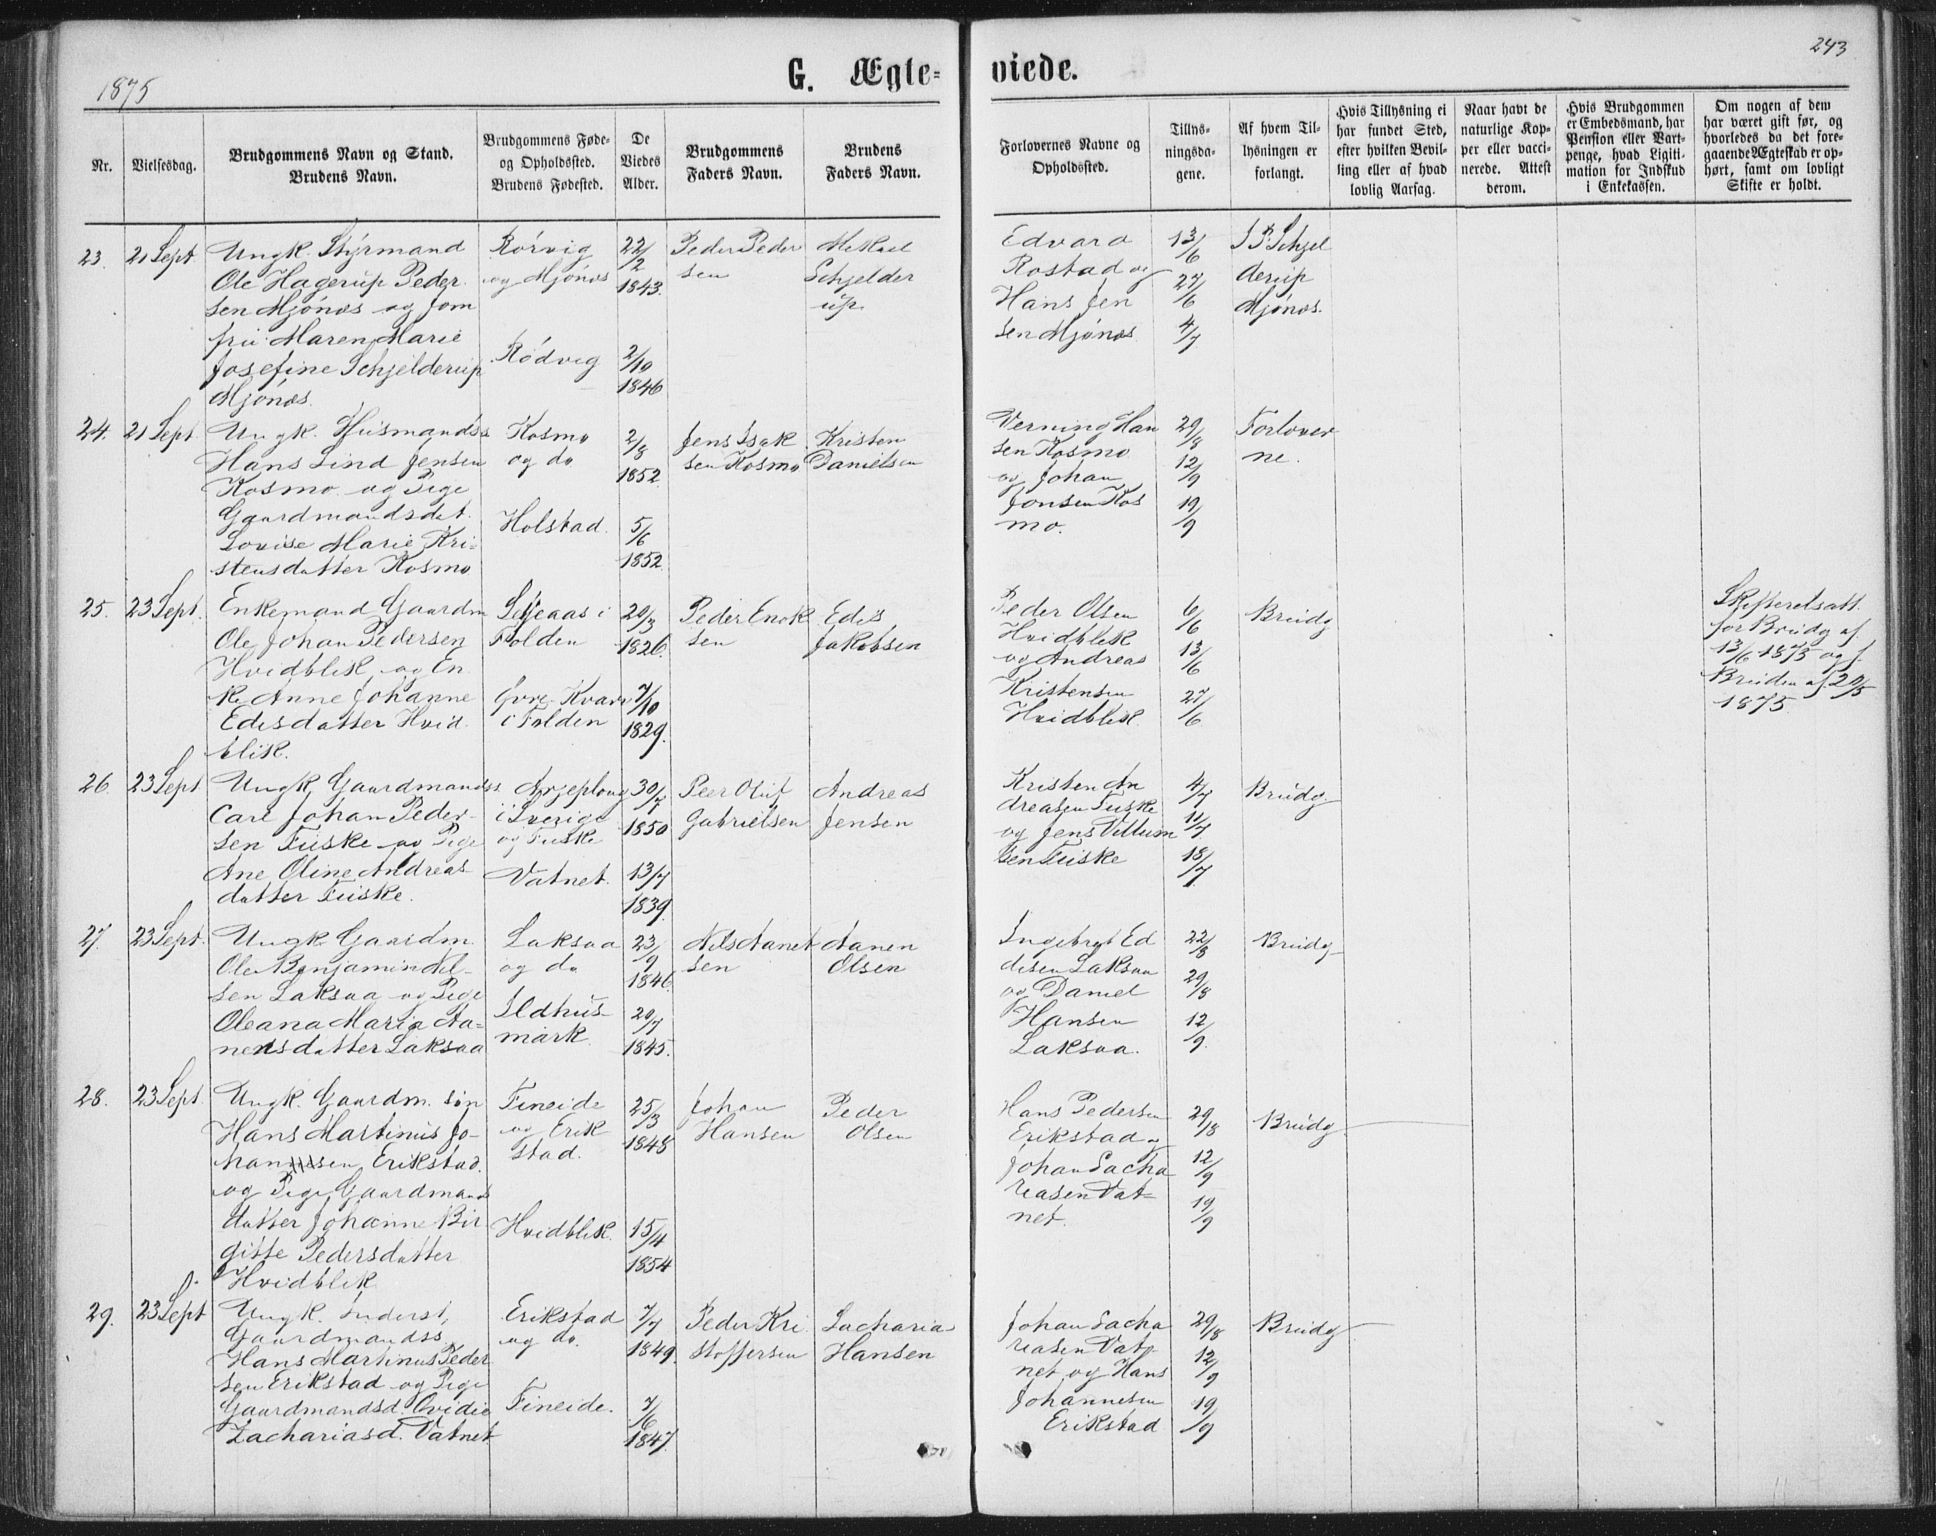 1875
G. Ægte-
viede.
243
Nr.
Vielsesdag.
Brudgommens Navn og Stand.
Brudens Navn.
Brudgommens Føde-
og Opholdssted.
Brudens Fødested.
De
Viedes
Alder.
Brudgommens
Faders Navn.
Brudens
Faders Navn.
Forlovernes Navne og
Opholdssted.
Tillys-
ningsda-
gene.
Af hvem Til-
lysningen er
forlangt.
Hvis Tillysning ei
har fundet Sted,
efter hvilken Bevil-
ling eller af hvad
lovlig Aarsag.
Naar havt de
naturlige Kop-
per eller vacci-
nerede. Attest
derom.
Hvis Brudgommen
er Embedsmand, har
Pension eller Vart-
penge, hvad Ligiti-
mation for Indskud
i Enkekassen.
Om nogen af dem
har været gift før, og
hvorledes da det fore-
gaaende Ægteskab er op-
hørt, samt om lovligt
Skifte er holdt.
23.
21 Sept.
Ungk. Styrmand
Ole Hagerup Peder
sen Mjönæs og Jom
fru Maren Marie
Josefine Schjelderup
Mjönæs.
Rörvig
og Mjönæs
Rödvig
22/2
1843.
2/10
1846
Peder Peder
sen
Mikael
Schjelder
up.
Edvard
Rostad og
Hans Jen
sen Mjönæs
13/6
27/6
4/7
Schjel
derup
Mjönæs.
24.
21 Sept.
Ungk. Husmandss
Hans Lind Jensen
Kosmo og Pige
Gaardmandsdat.
Lovise Marie Kri-
stensdatter Kosmo
Kosmo
og do
Holstad.
2/8
1852.
5/6
1852
Jens Isak
sen Kosmo
Kristen
Danielsen
Verning Han
sen Kosmo
og Johan
Jonsen Kos
mo.
29/8
12/9
19/9
Forlover
ne.
25.
23 Sept.
Enkemand Gaardm
Ole Johan Pedersen
Hvidblik og En
ke Anne Johanne
Edisdatter Hvid
blik.
i
Folden
Kvarv
i Folden
20/3
1826.
7/10
1829.
Peder Enok
sen
Edis
Jakobsen
Peder Olsen
Hvidblik
og Andreas
Kristensen
Hvidblik.
6/6
13/6
27/6
Brudg
Skifteretsatt.
for Brudg af
13/6 1875 og f.
Bruden af 20/5
1875.
26.
23 Sept
Ungk. Gaardmandss.
Carl Johan Peder-
sen Fuske og Pige
Ane Oline Andreas
datter Fuske.
Arjeploug
i Sverige
og Fuske
Vatnet.
30/7
1850
13/7
1839.
Peer Oluf
Gabrielsen
Andreas
Jensen
Kristen An
dreasen Fuske
og Jens Villum
sen Fuske
4/7
11/7
18/7
Brudg
27.
23 Sept.
Ungk. Gaardm
Ole Benjamin Nil-
sen Laksaa og Pige
Oleana Maria Aa-
nensdatter Laksaa
Laksaa
og do
Ildhus-
mark.
23/9
1846.
20/7
1845.
Nils Aanet
sen
Aanen
Olsen
Ingebrgt Ed
disen Laksaa
og Daniel
Hansen
Laksaa.
22/8
29/8
12/9.
Brudg
28.
23 Sept.
Ungk. Gaardm. sön
Hans Martinus Jo-
hannssen Erikstad.
og Pige Gaardmands
datter Johanne Bir
gitte Pedersdatter
Hvidblik
Fineide
og Erik
stad.
Hvidblik.
25/3
1848
15/4
1854
Johan
Hansen
Peder
Olsen
Hans Pedersen
Erikstad og
Johan Sacha
riasen Vat-
net.
29/8
12/9
19/9
Brudg
29.
23 Sept
Ungk. Inderst,
Gaardmandss
Hans Martinus Peder
sen Erikstad og Pige
Gaardmandsd. Ovidie
Zachariasd. Vatnet
Erikstad
og do.
Fineide.
7/7
1849.
7/6
1847.
Peder Kri
stoffersen
Zacharia
Hansen
Johan Sacha
riasen Vat-
net og Hans
Johannesen
Erikstad
29/8
12/9
19/9
Brudg